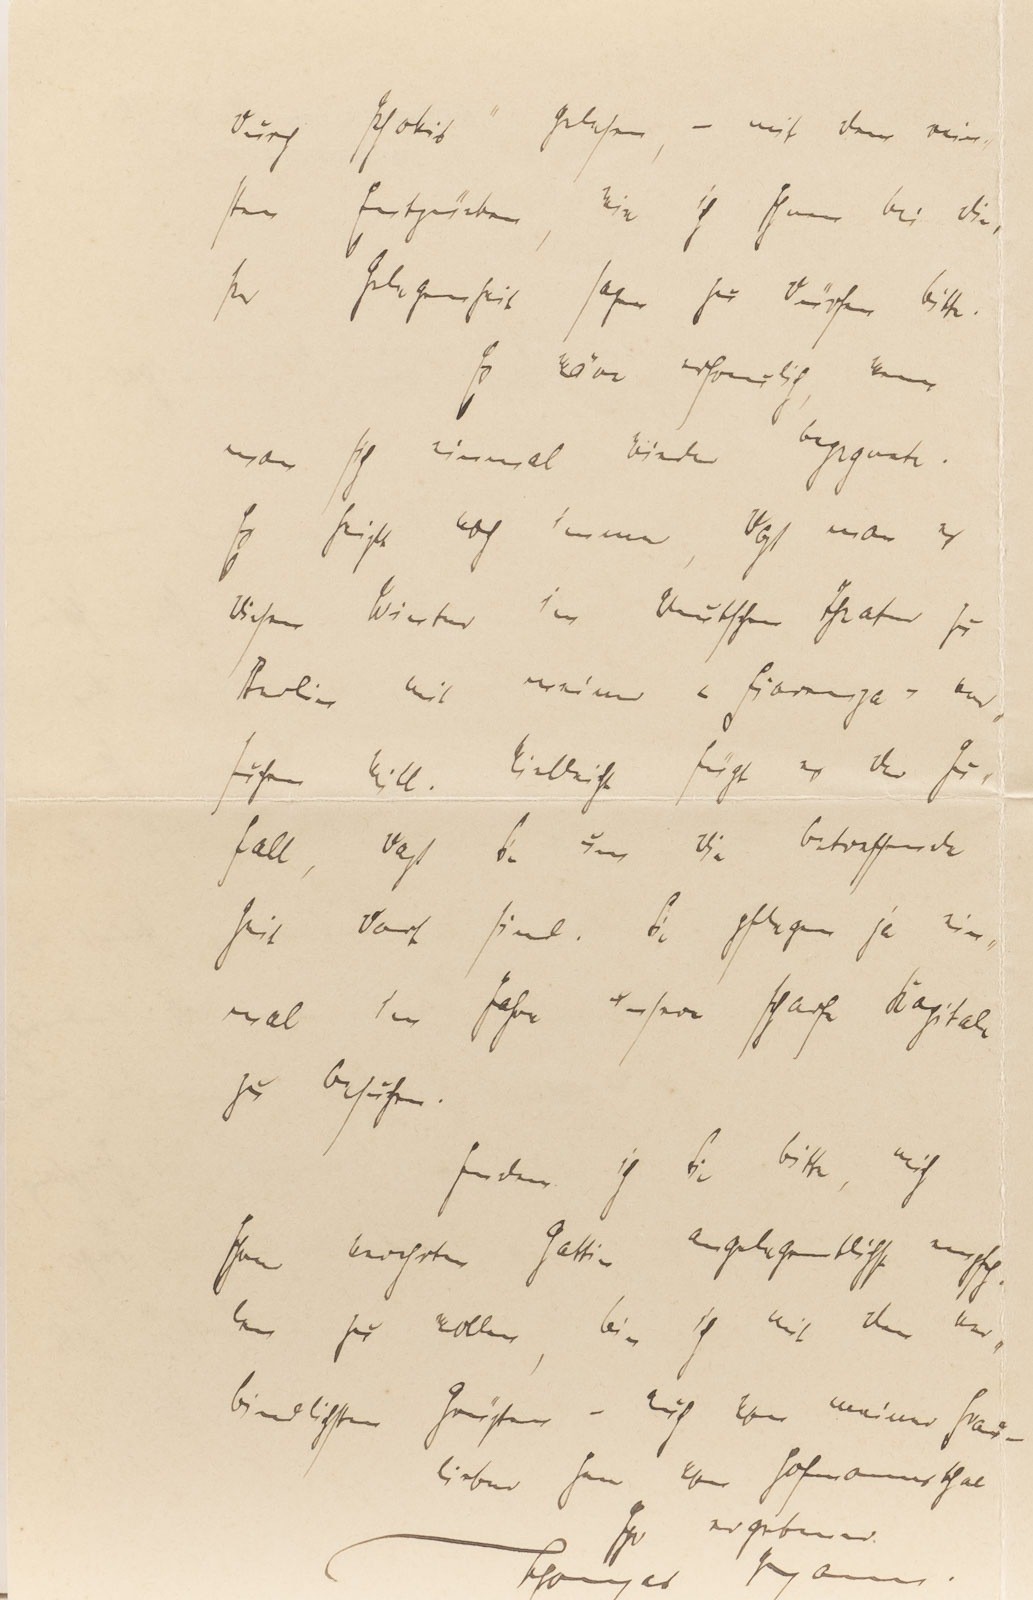 durch Phokis" gelesen, – mit dem rein-
sten Entzücken, wie ich Ihnen bei die-
ser Gelegenheit sagen zu dürfen bitte.
Es wäre erfreulich, wenn
man sich einmal wieder begegnete.
Es heißt noch immer, daß man es
diesen Winter im Deutschen Theater zu
Berlin mit meiner « Fiorenza » ver-
suchen will. Vielleicht fügt es der Zu-
fall, daß Sie um die betreffende
Zeit dort sind. Sie pflegen ja ein-
mal im Jahre unsere scharfe Kapitale
zu besuchen.
Indem ich Sie bitte, mich
Ihrer verehrten Gattin angelegentlichst empfeh-
len zu wollen, bin ich mit den ver-
bindlichsten Grüßen – auch von meiner Frau –
lieber Herr von Hofmannsthal
Ihr ergebener
Thomas Mann.